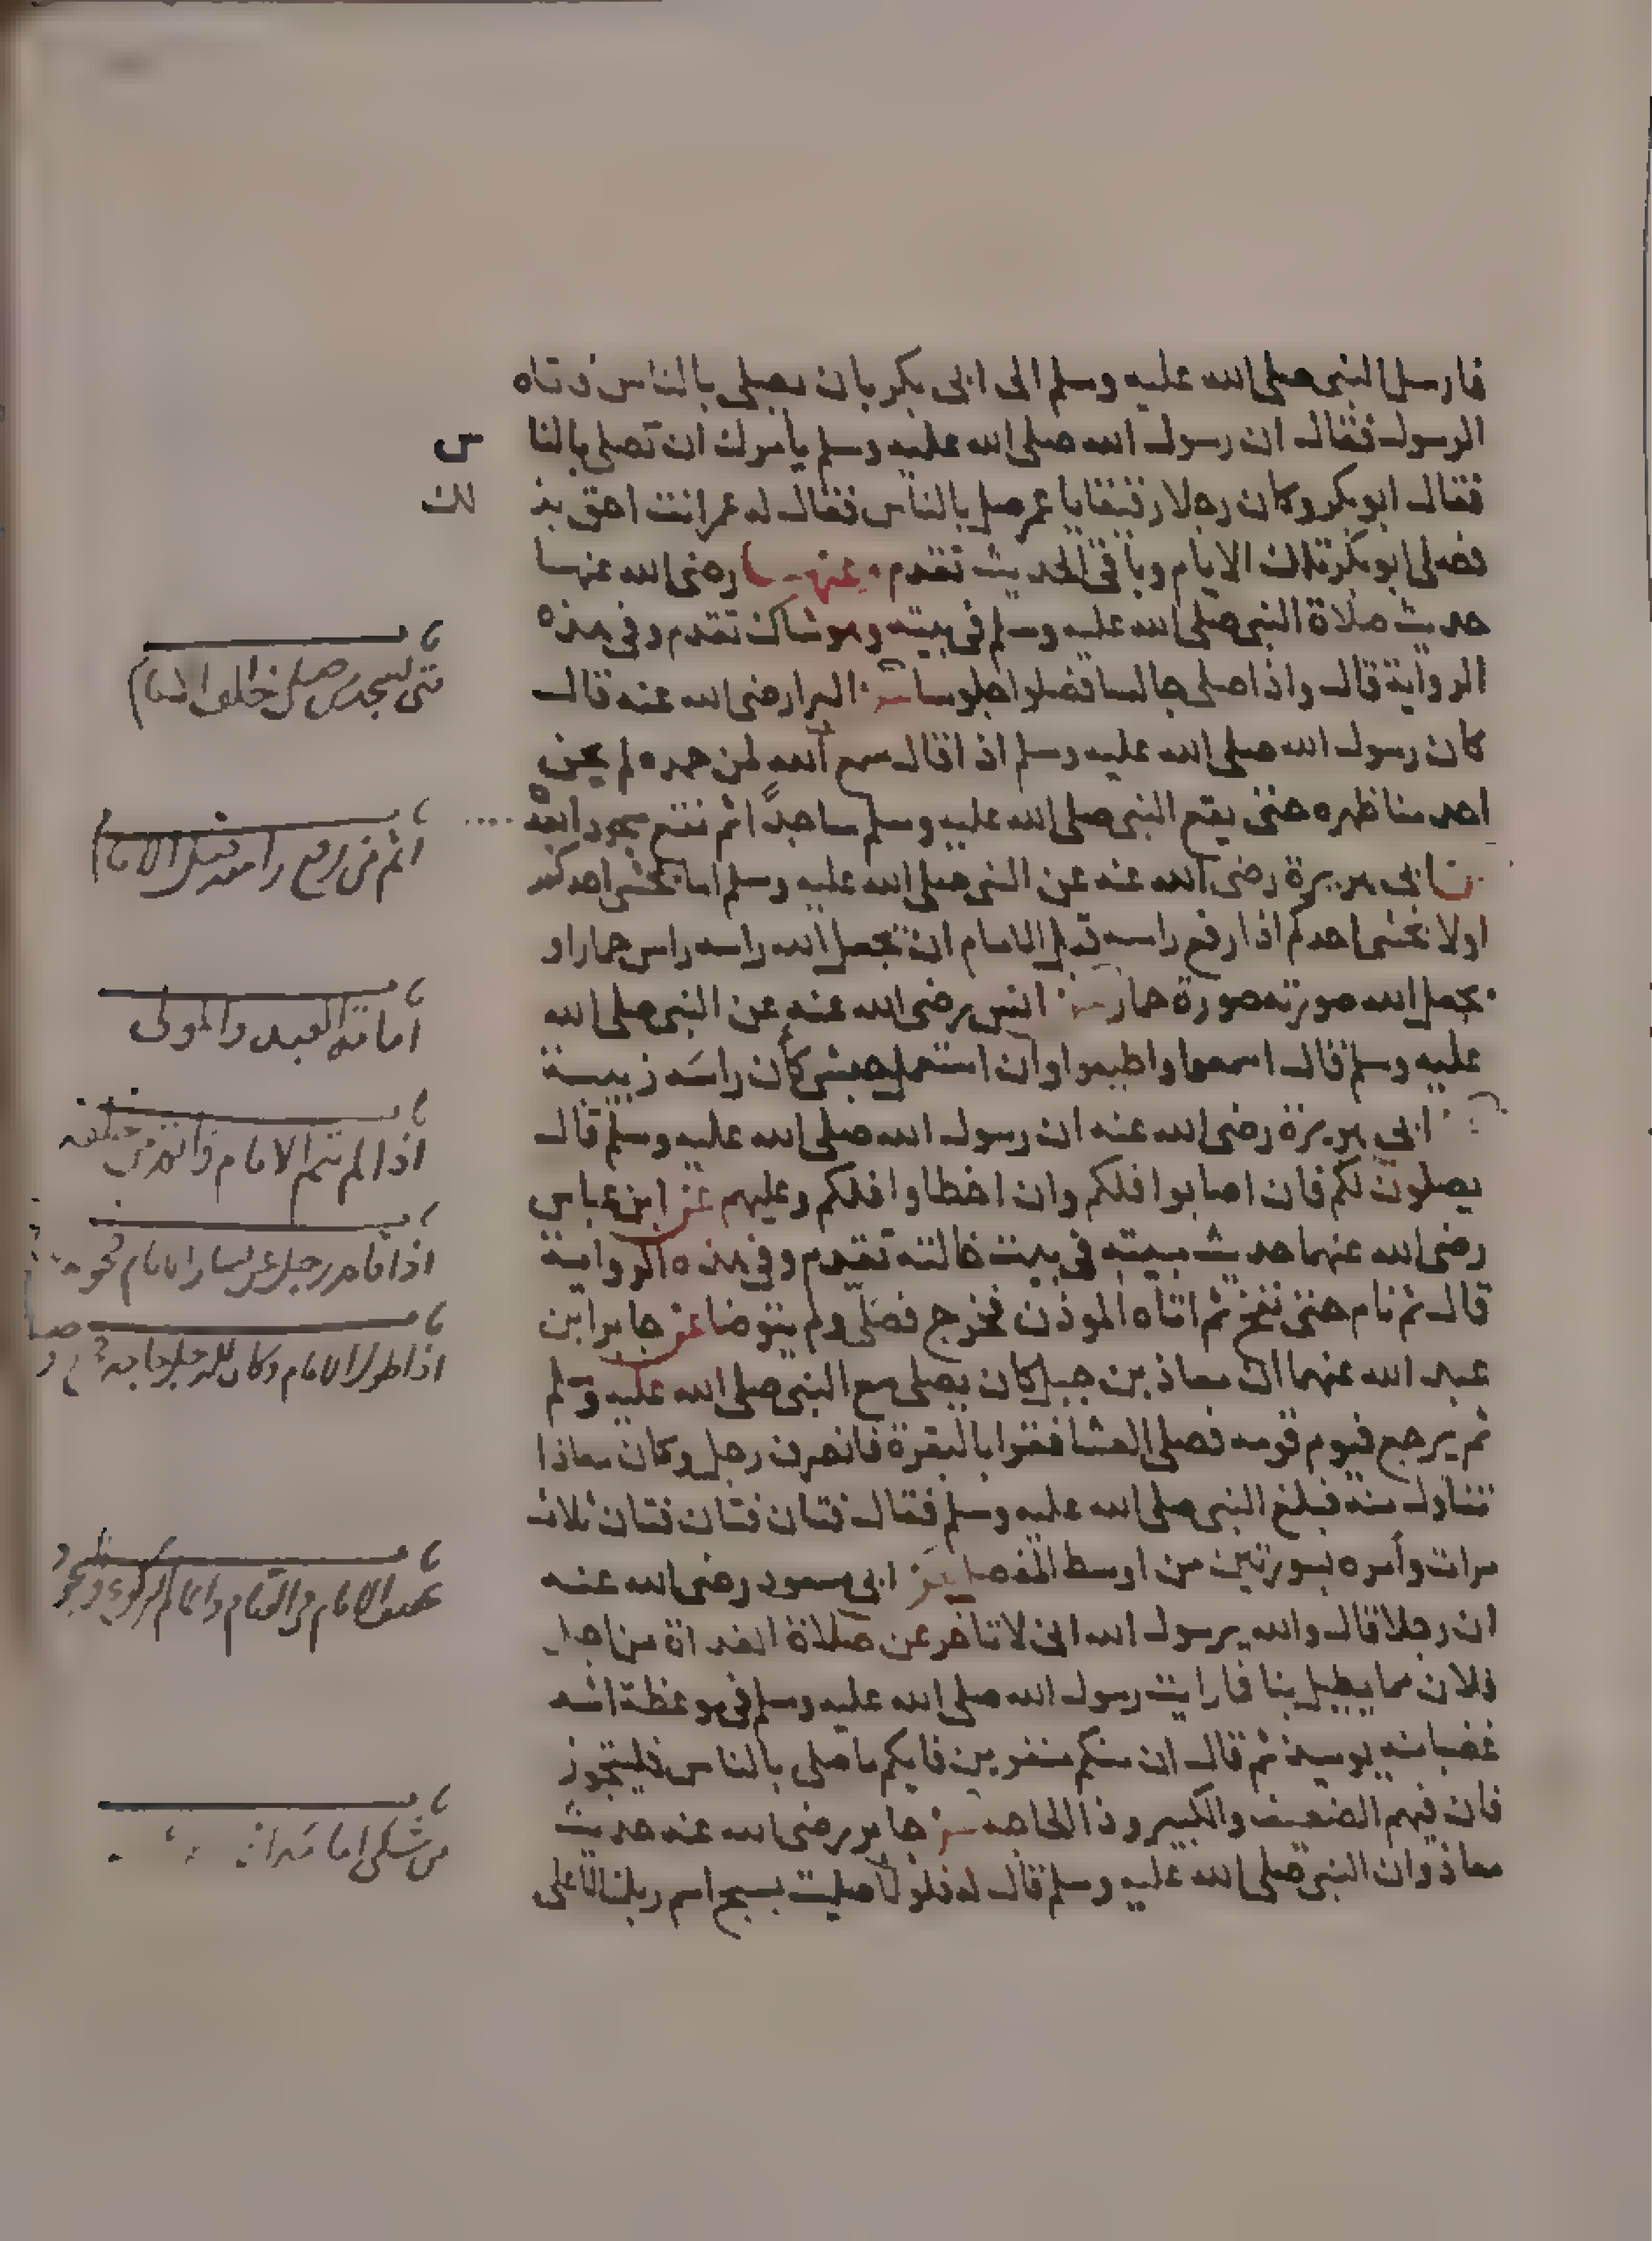 فارسل النبى صلى الله عليه وسلم الى ابى بكر بان يصلى بالناس فاتاه
الرسول فقال ان رسول الله صلى الله عليه وسلم يأمرك ان تصلى بالنا
س
فقال ابو بكر وكان رجلا رقيقا يا عمر صل بالناس فقال له عمر انت احق بذ
لك
فصلى ابو بكر تلك الايام وباقى الحديث تقدم عنها رضى الله عنها
حديث صلاة النبى صلى الله عليه وسلم فى بيته وهو شاك تقدم وفى هذه
الرواية قال واذا صلى جالسا فصلوا جلوسا عن البرا رضى الله عنه قال
متى يسجد من صلى خلف الامام
كان رسول الله صلى الله عليه وسلم اذا قال سمع الله لمن حمده لم يحن
احد منا ظهره حتى يقع النبى صلى الله عليه وسلم ساجدا ثم نقع سجودا بعده
اثم من رفع راسه قبل الامام
عن ابى هريرة رضى الله عنه عن النبى صلى الله عليه وسلم اما يخشى احدكم
اولا يخشى احدكم اذا رفع راسه قبل الامام ان يجعل الله راسه راس حمار او
يجعل الله صورته صورة حمار عن انس رضى الله عنه عن النبى صلى الله
امامة العبد والمولى
عليه وسلم قال اسمعوا واطيعوا وان استعمل حبشى كأن راسه زبيبة
عن ابى هريرة رضى الله عنه ان رسول الله صلى الله عليه وسلم قال
اذا لم يتم الامام واتم من خلفه
يصلون لكم فان اصابوا فلكم وان اخطاوا فلكم وعليهم عن ابن عباس
رضى الله عنهما حديث مبيته فى بيت خالته تقدم وفى هذه الرواية
اذا قام رجل عن يسار الامام
قال ثم نام حتى نفخ ثم اتاه الموذن فخرج فصلى ولم يتوضا عن جابر ابن
عبد الله عنهما ان معاذ بن جبل كان يصلى مع النبى صلى الله عليه وسلم
اذا طول الامام وكان للرجل حاجة
ثم يرجع فيوم قومه فصلى العشا فقرا بالبقرة فانصرف رجل وكان معاذا
تناول منه فبلغ النبى صلى الله عليه وسلم فقال فتان فتان فتان ثلاث
مرات وأمره بسورتين من اوسط المفصل عن ابى مسعود رضى الله عنه
الامام فى القيام واتمام الركوع
ان رجلا قال والله يرسول الله انى لاتاخر عن صلاة الغداة من اجل
فلان مما يطيل بنا فما رايت رسول الله صلى الله عليه وسلم فى موعظة اشد
غضبا منه يوميذ ثم قال ان منكم منفرين فايكم ما صلى بالناس فليتجوز
فان فيهم الضعيف والكبير وذا الحاجه عن جابر رضى الله عنه حديث
من شكى امامه اذا
معاذ وان النبى صلى الله عليه وسلم قال له فلولا صليت بسبح اسم ربك الاعلى